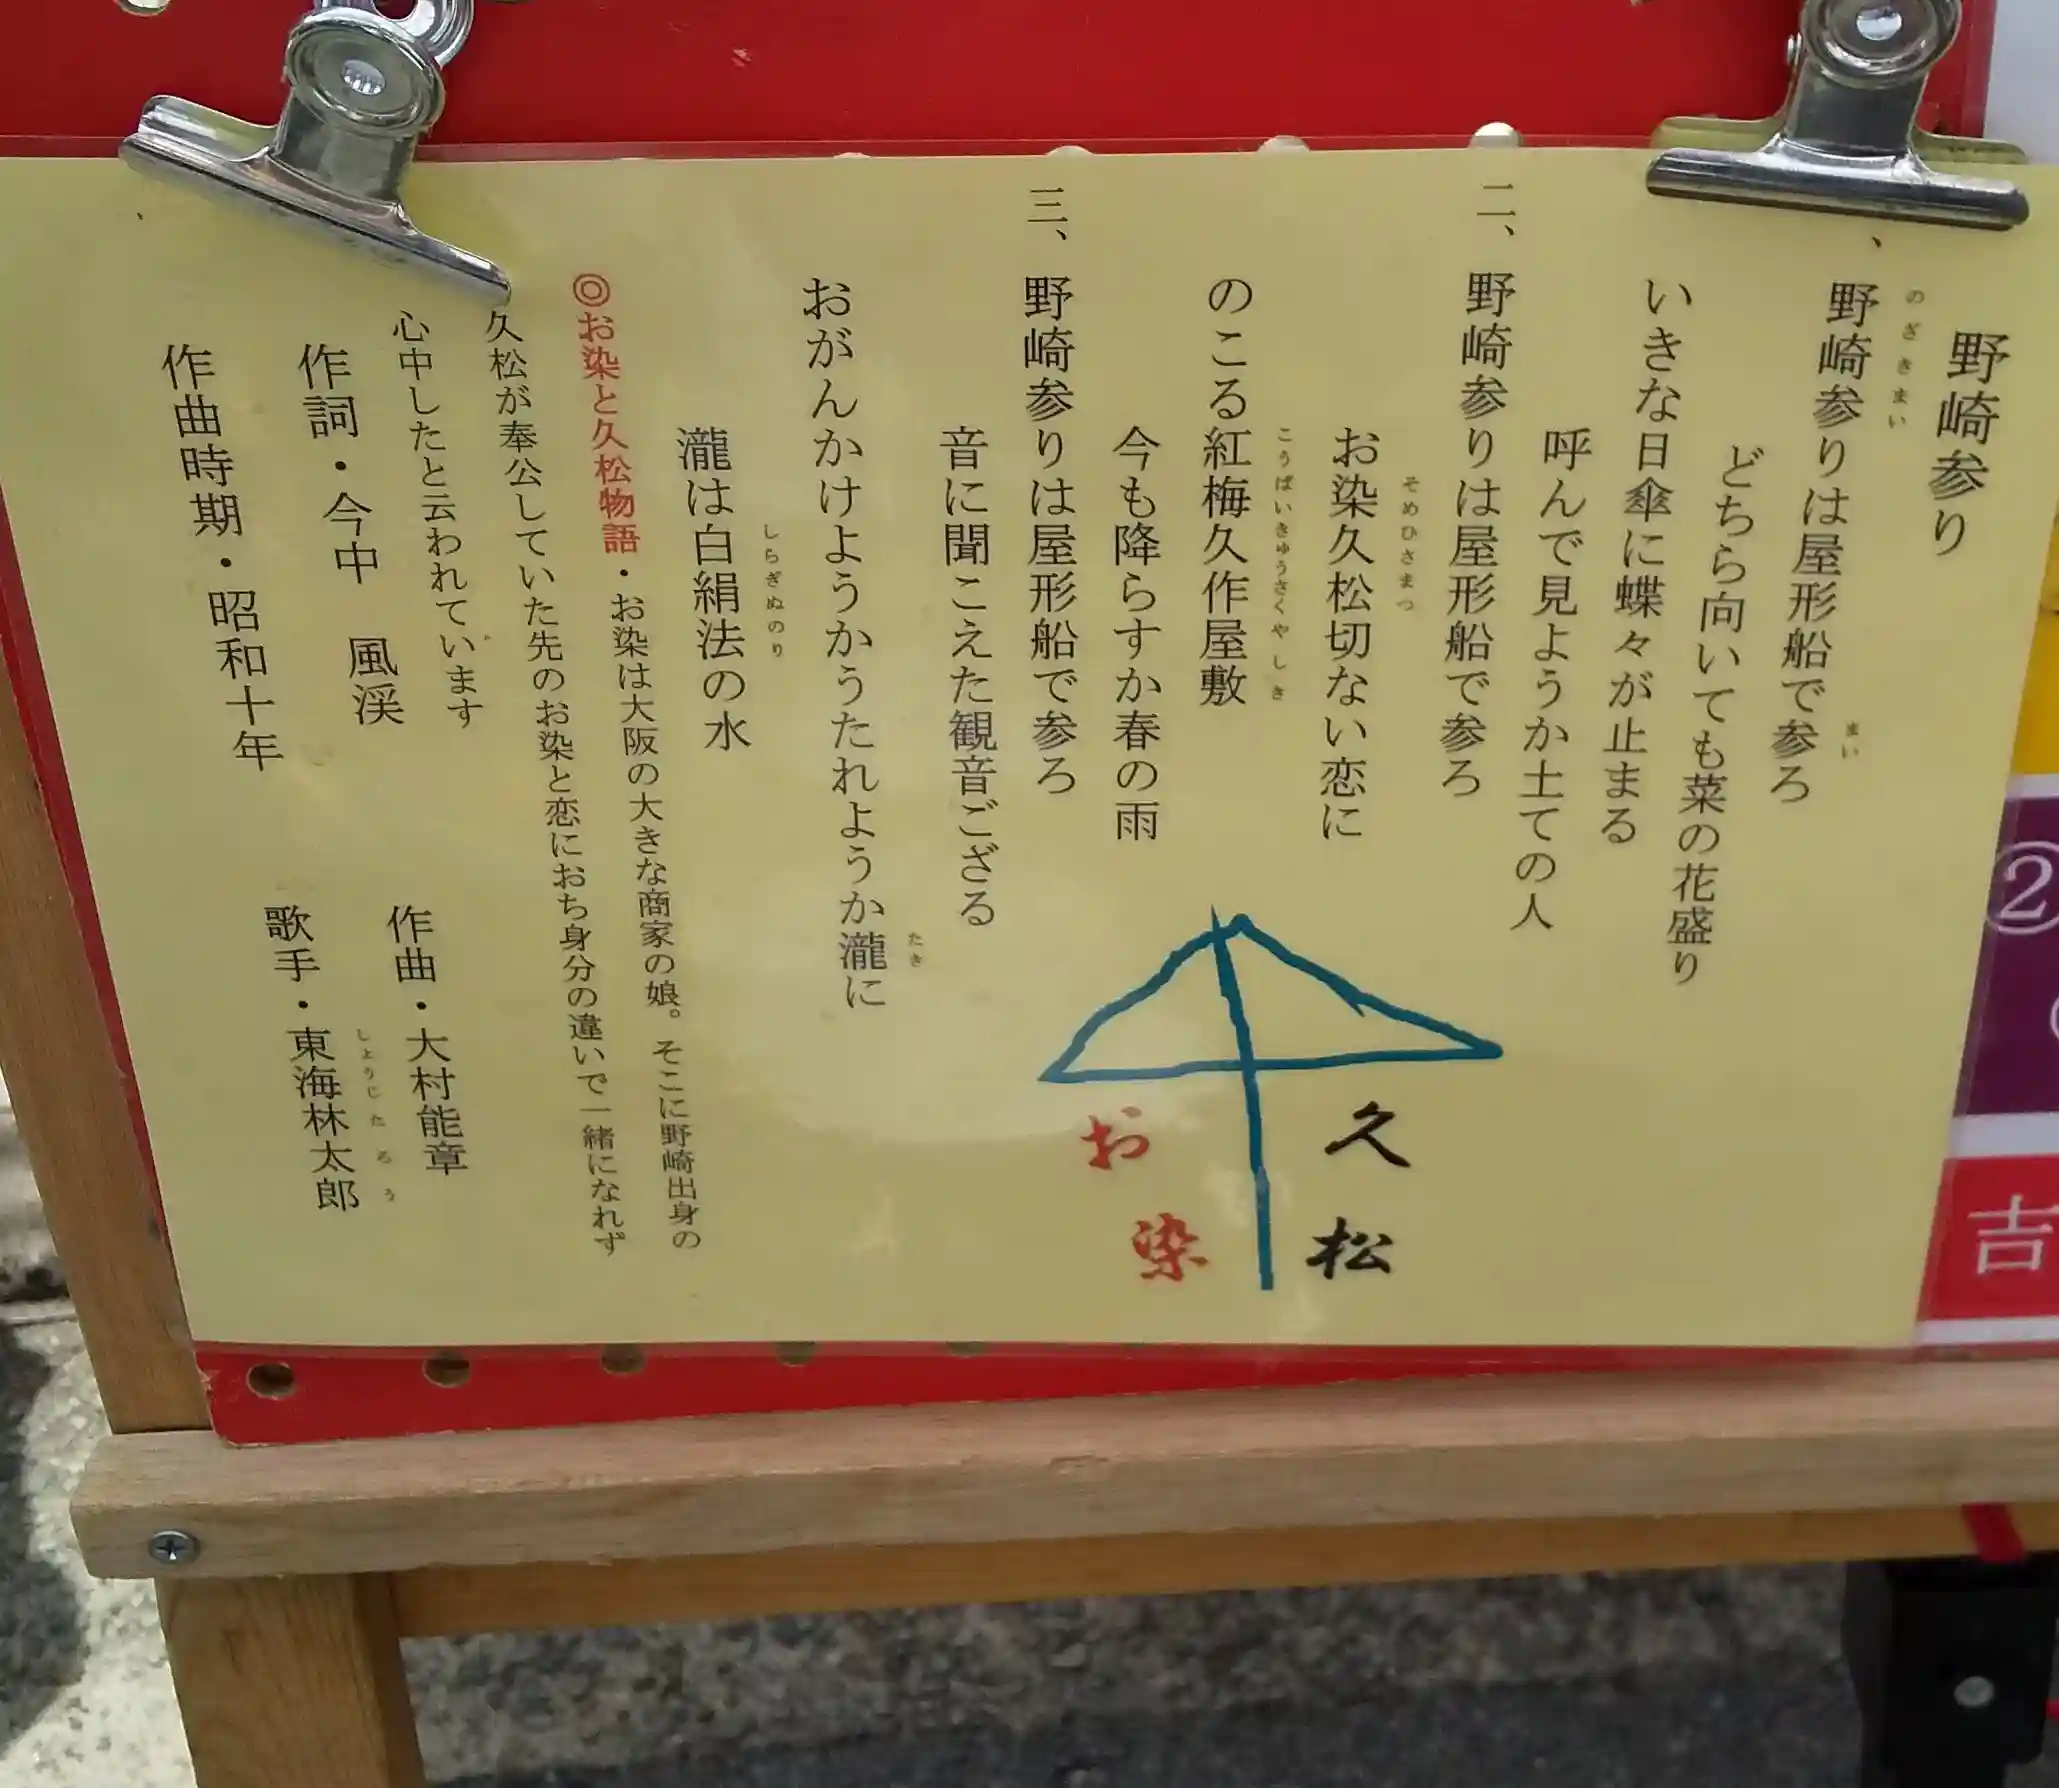 野崎参り
、野崎参りは屋形船で参ろ
のざきまい
まい
どちら向いても菜の花盛り
いきな日傘に蝶々が止まる
呼んで見ようか土ての人
二、野崎参りは屋形船で参ろ
お染久松切ない恋に
そめひさまつ
のこる紅梅久作屋敷
こうばいきゅうさくやしき
今も降らすか春の雨
三、野崎参りは屋形船で参ろ
音に聞こえた観音ござる
おがんかけようかうたれようか瀧に
たき
瀧は白絹法の水
しらぎぬのり
◎お染と久松物語・お染は大阪の大きな商家の娘。そこに野崎出身の
久松が奉公していた先のお染と恋におち身分の違いで一緒になれず
心中したと云われています
作詞・今中 風渓
作曲・大村能章
作曲時期・昭和十年
歌手・東海林太郎
しょうじたろう
久松
お染
②
吉